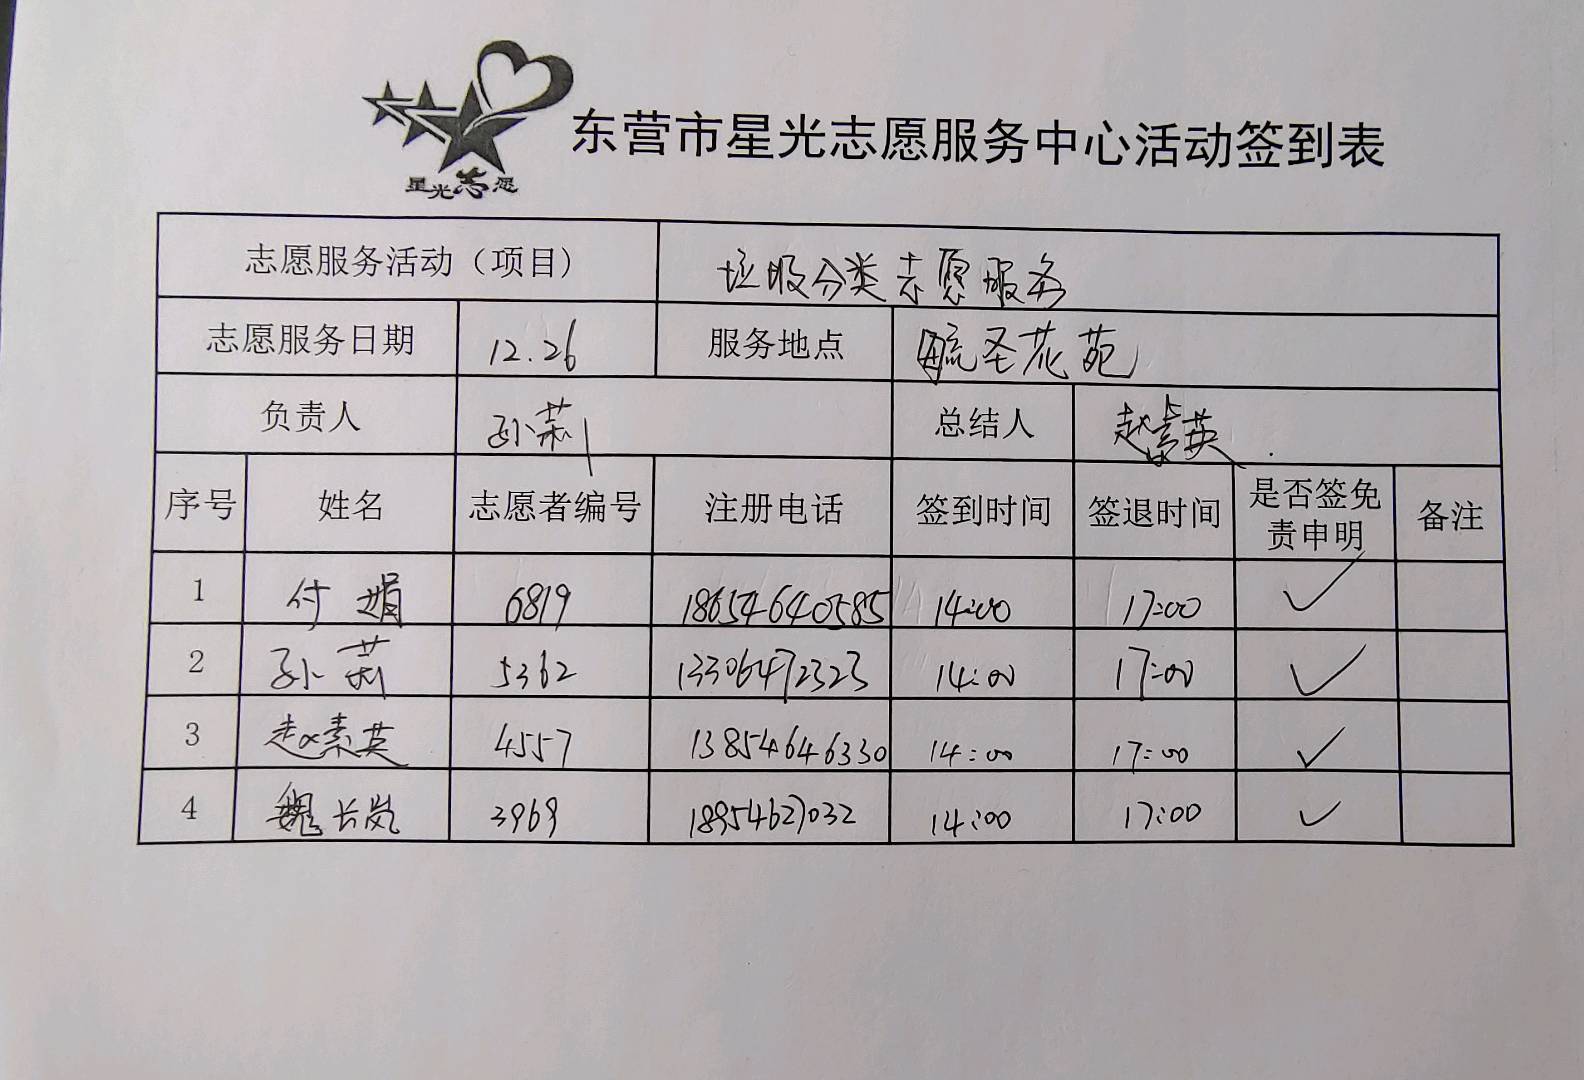 星光志愿
东营市星光志愿服务中心活动签到表
志愿服务活动（项目） 垃圾分类志愿服务
志愿服务日期 12.26 服务地点 毓圣花苑
负责人 孙莉 总结人 赵素英
序号 姓名 志愿者编号 注册电话 签到时间 签退时间 是否签免责申明 备注
1 付娟 6819 18654640585 14:00 17:00 ✓
2 孙莉 5362 13306472323 14:00 17:00 ✓
3 赵素英 4557 13854646330 14:00 17:00 ✓
4 魏长岚 3969 18954627032 14:00 17:00 ✓